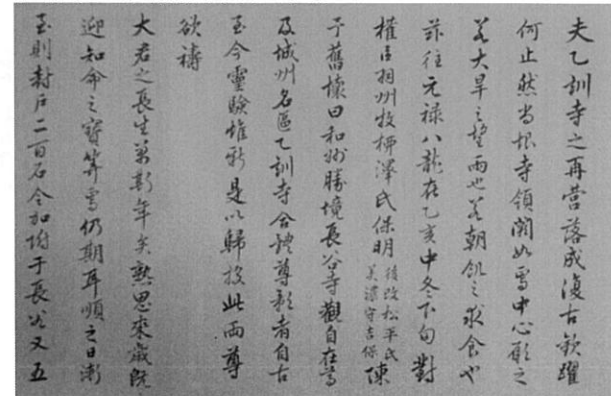 夫乙訓寺之再営落成復古歓躍
何止然尚恨寺領闕如焉中心願之
若大旱之望雨也若朝飢之求食也
茲往元禄八龍在乙亥中冬下旬對
權臣相州牧柳澤氏保明後改松平氏美濃守吉保陳
予舊懐曰和州勝境長谷寺觀自在尊
及城州名區乙訓寺合體尊影者自古
至今靈驗惟新是以歸投此両尊
欲祷
大君之長生萬斯年矣熟思來歳既
迎知命之寶筭焉仍期耳順之日漸
至則封戸二百石令加附于長谷又五